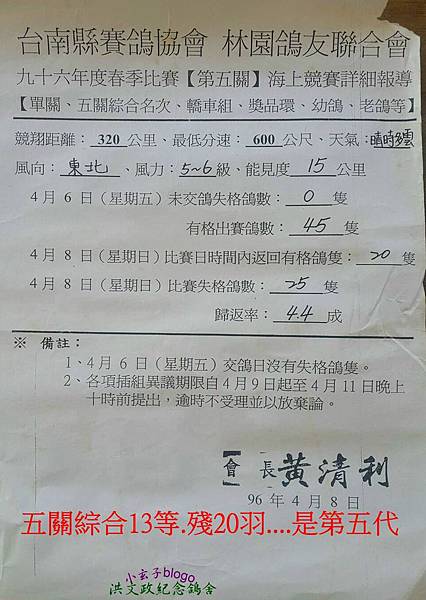 台南縣賽鴿協會 林園鴿友聯合會
九十六年度春季比賽【第五關】海上競賽詳細報導
【單關、五關綜合名次、轎車組、獎品環、幼鴿、老鴿等】
競翔距離：320 公里、最低分速：600 公尺、天氣：晴時多雲
風向：東北、風力：5~6 級、能見度 15 公里
4 月 6 日（星期五）未交鴿失格鴿數：0 隻
有格出賽鴿數：45 隻
4 月 8 日（星期日）比賽日時間內返回有格鴿隻：20 隻
4 月 8 日（星期日）比賽失格鴿數：25 隻
歸返率：4.4 成
※ 備註：
1、4 月 6 日（星期五）交鴿日沒有失格鴿隻。
2、各項插組異議期限自 4 月 9 日起至 4 月 11 日晚上
十時前提出，逾時不受理並以放棄論。
會長 黃清利
96 年 4 月 8 日
五關綜合13等.殘20羽....是第五代
小玄子blogo
洪文政紀念鴿舍